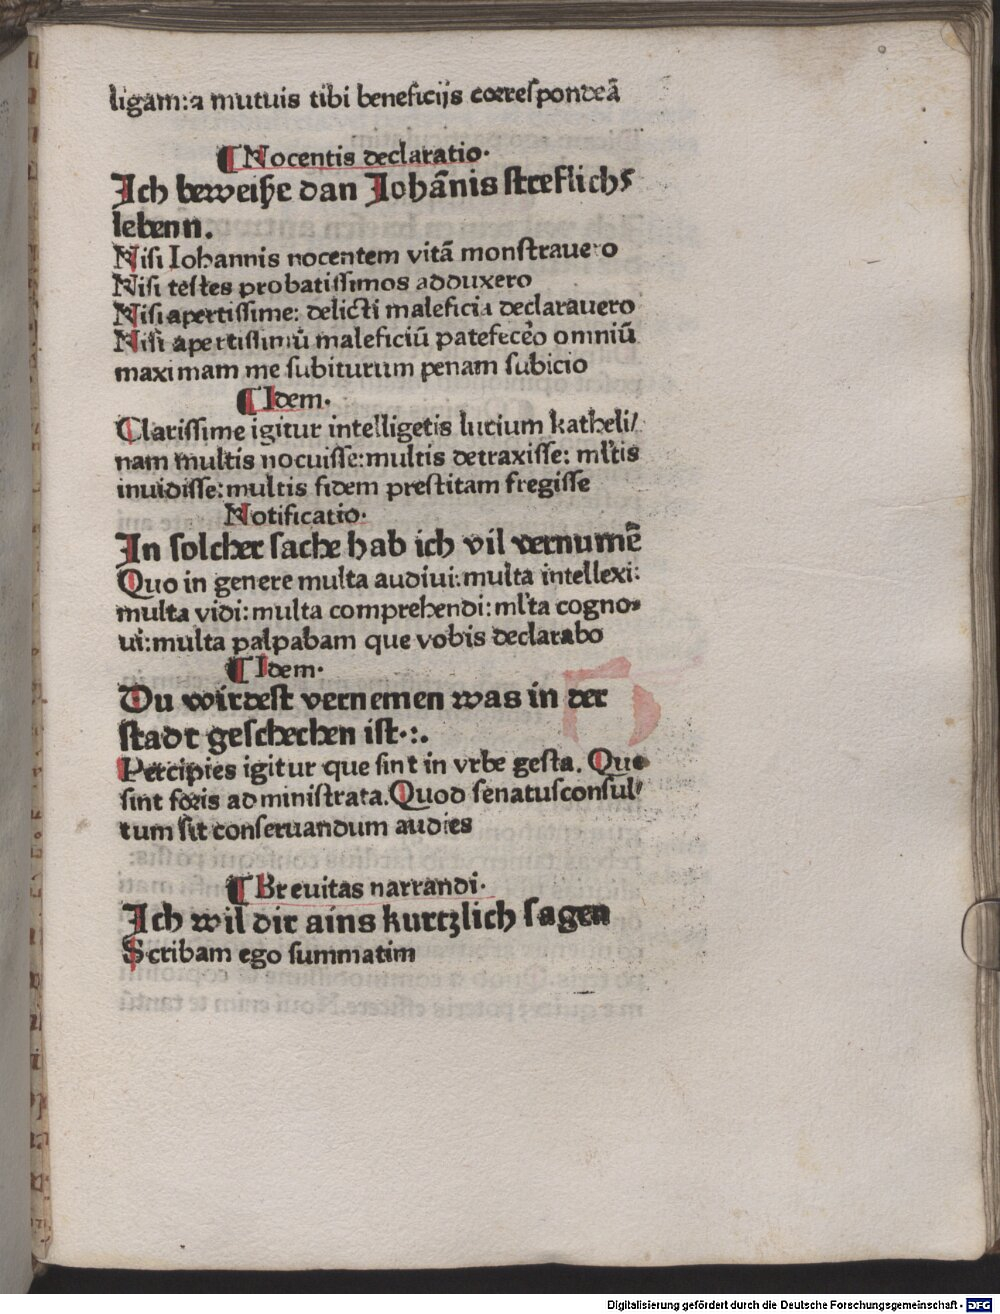 ligam:a mutuis tibi beneficijs correspondeā
¶ Nocentis declaratio·
Ich beweiſze dan Iohānis streflichs
lebenn.
Niſi Iohannis nocentem vitā monſtrauero
Niſi teſtes probatiſſimos adduxero
Niſi apertiſſime: delicti maleficia declarauero
Niſi apertiſſimū maleficiū patefecēo omniū
maximam me ſubiturum penam ſubicio
¶ Idem·
Clariſſime igitur intelligetis lucium katheli/
nam multis nocuiſſe:multis detraxiſſe: ml'tis
inuidiſſe:multis fidem preſtitam fregiſſe
Notificatio·
In ſolcher ſache hab ich vil vernumē
Quo in genere multa audiui:multa intellexi:
multa vidi:multa comprehendi:ml'ta cogno-
ui:multa palpabam que vobis declarabo
¶ Idem·
Du wirdeſt vernemen was in der
ſtadt geſchechen iſt·:.
Percipies igitur que ſint in vrbe geſta. Que
ſint foris adminiſtrata.Quod ſenatusconſul/
tum ſit conſeruandum audies
¶ Breuitas narrandi·
Ich wil dir ains kurtzlich ſagen
Scribam ego ſummatim
Digitalisierung gefördert durch die Deutsche Forschungsgemeinschaft - DFG